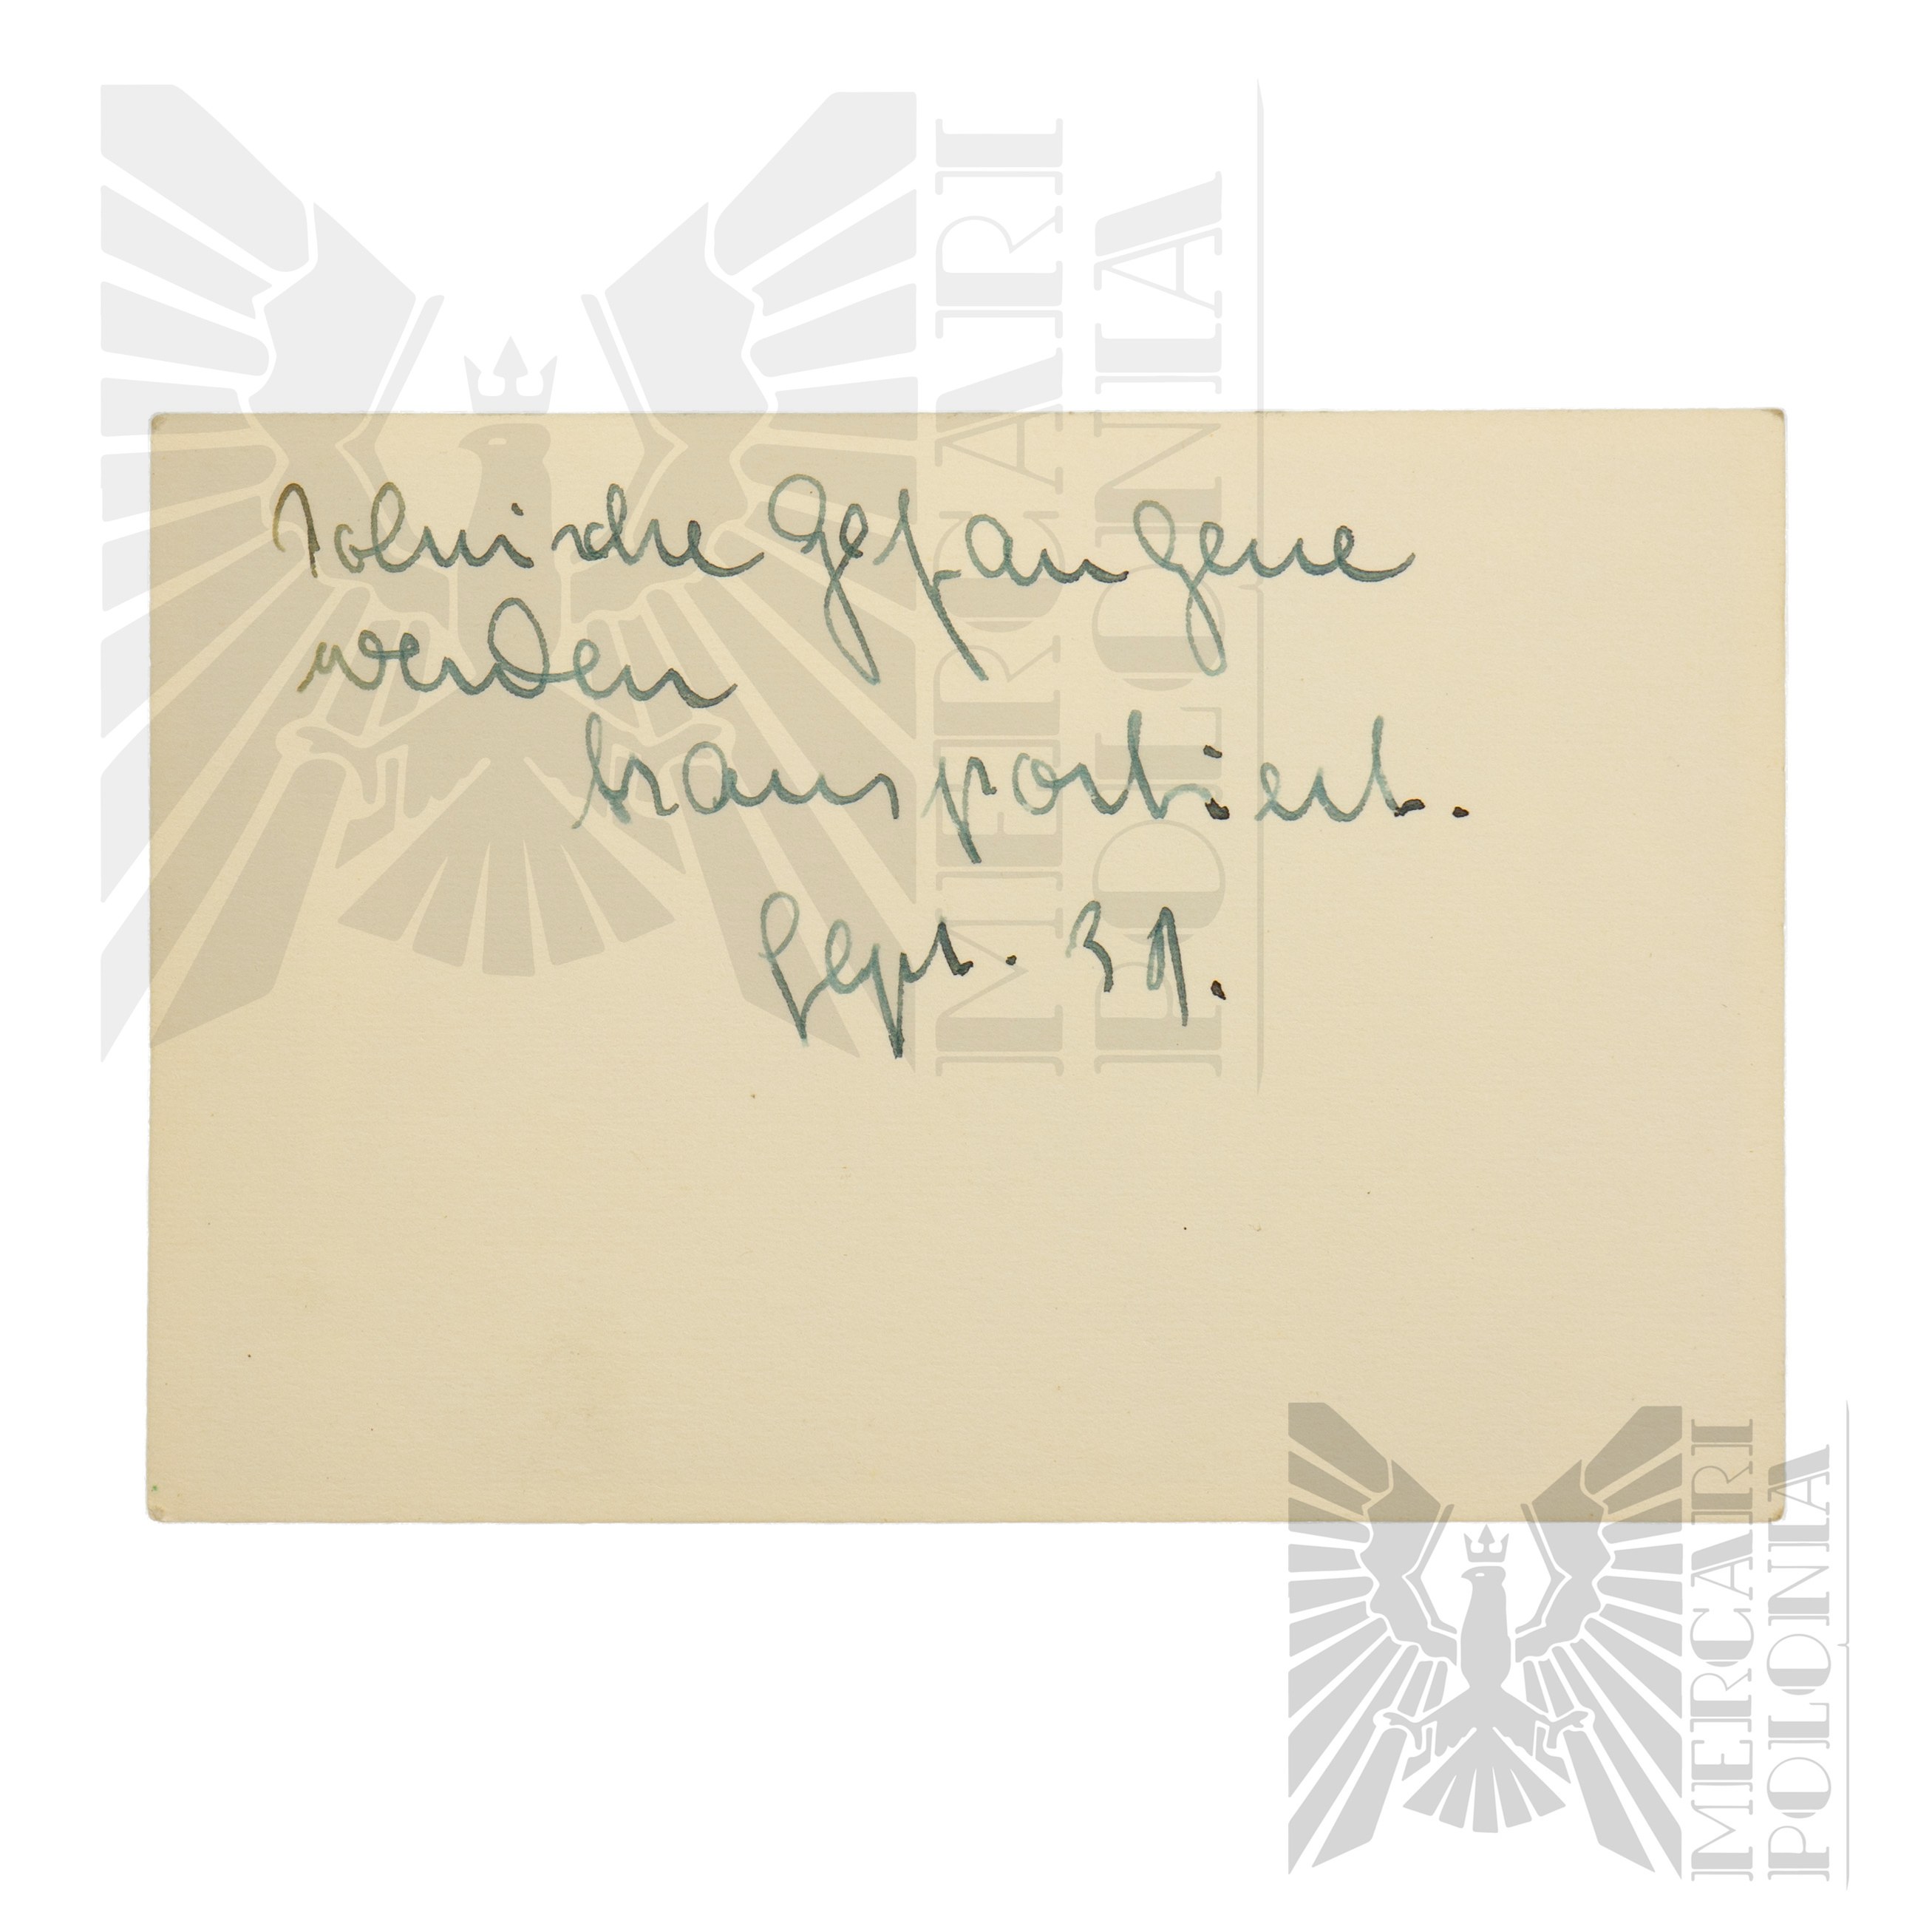 Polnische Gefangene
werden
transportiert.
Sept. 39.
MERCARI
POLONIA
MERCARI
POLONIA